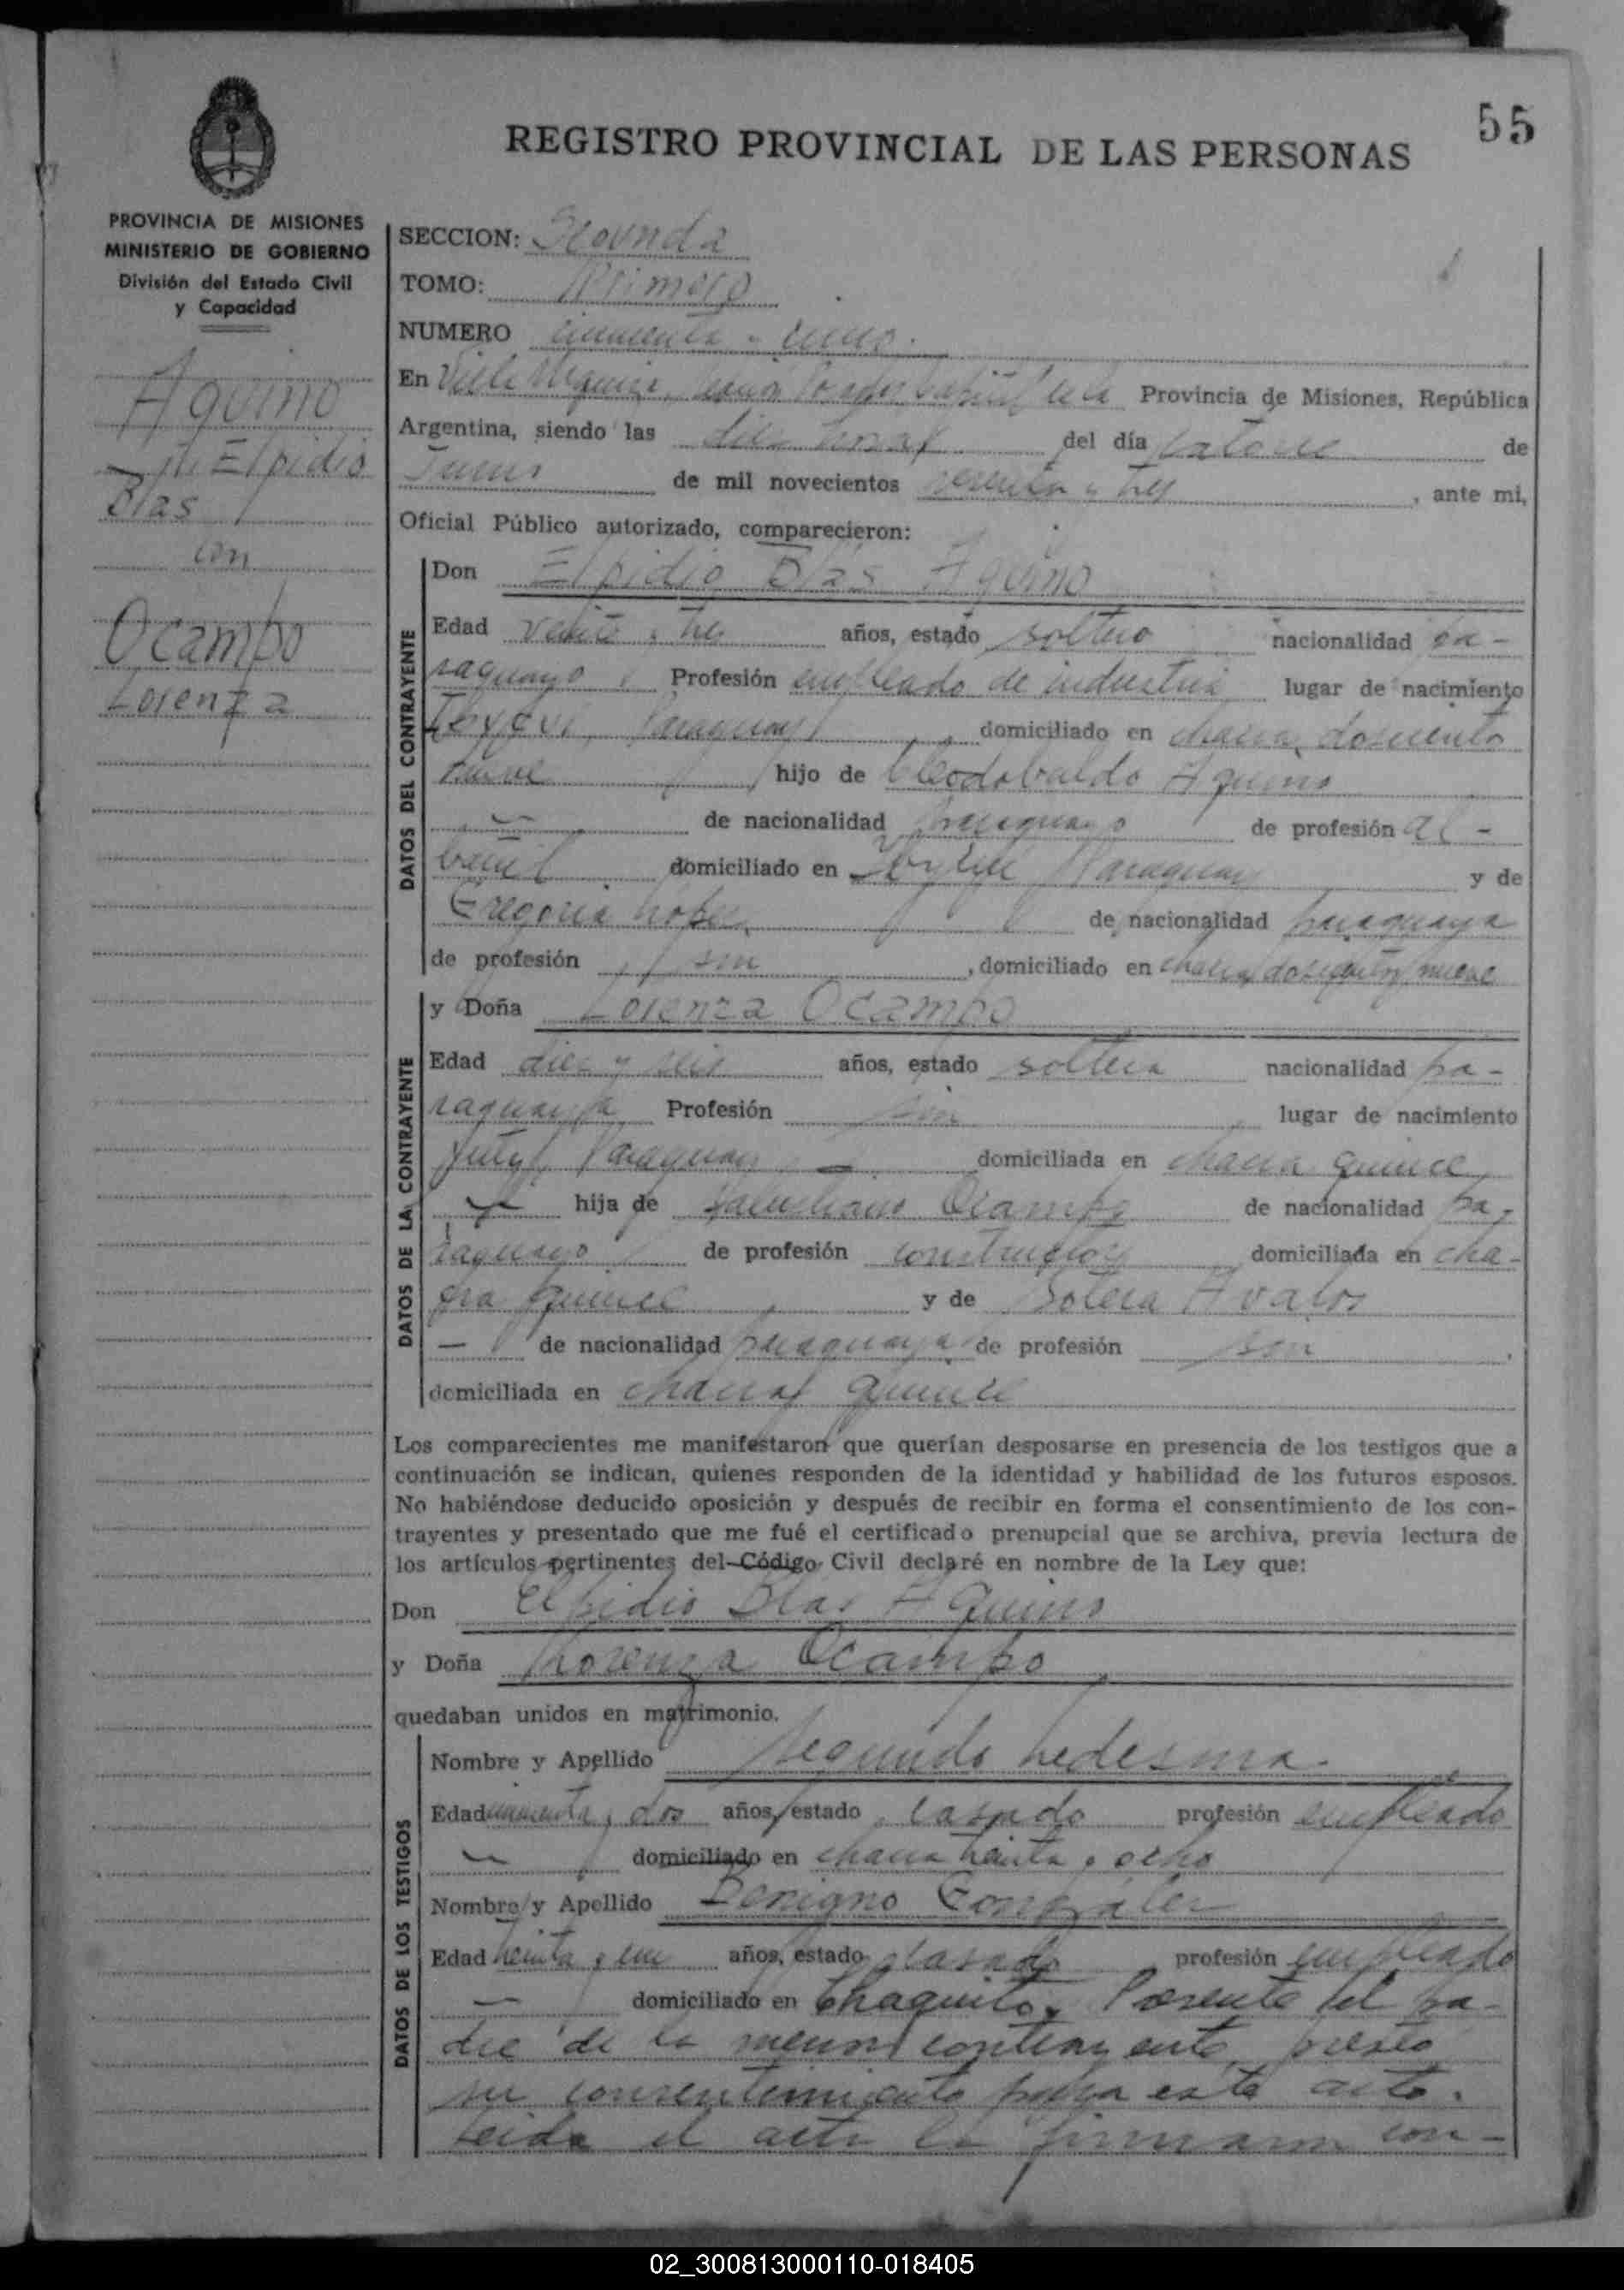 55
REGISTRO PROVINCIAL DE LAS PERSONAS
PROVINCIA DE MISIONES
MINISTERIO DE GOBIERNO
División del Estado Civil
y Capacidad
Aquino
Elpidio
Blas
con
Ocampo
Lorenza
SECCION: Segunda
TOMO: Primero
NUMERO cincuenta y cinco.
En Villa Provincia de Misiones, República
Argentina, siendo las diez horas del día catorce de
Junio de mil novecientos y tres, ante mi,
Oficial Público autorizado, comparecieron:
DATOS DEL CONTRAYENTE
Don Elpidio Blas Aquino
Edad veinte y tres años, estado soltero nacionalidad pa-
raguayo, Profesión empleado de industria lugar de nacimiento
Paraguay, domiciliado en chacra doscientos
nueve hijo de Cleodobaldo Aquino
— de nacionalidad paraguayo de profesión al-
bañil domiciliado en Paraguay y de
Gregoria Lopez de nacionalidad paraguaya
de profesión sin, domiciliado en chacra doscientos nueve
DATOS DE LA CONTRAYENTE
y Doña Lorenza Ocampo
Edad diez y seis años, estado soltera nacionalidad pa-
raguaya Profesión sin lugar de nacimiento
Yuty, Paraguay — domiciliada en chacra quince
— hija de Salustiano Ocampo de nacionalidad pa-
raguayo de profesión constructor domiciliada en cha-
cra quince y de Sotera Avalos
— de nacionalidad paraguaya de profesión sin
domiciliada en chacra quince
Los comparecientes me manifestaron que querían desposarse en presencia de los testigos que a
continuación se indican, quienes responden de la identidad y habilidad de los futuros esposos.
No habiéndose deducido oposición y después de recibir en forma el consentimiento de los con-
trayentes y presentado que me fué el certificado prenupcial que se archiva, previa lectura de
los artículos pertinentes del Código Civil declaré en nombre de la Ley que:
Don Elpidio Blas Aquino
y Doña Lorenza Ocampo
quedaban unidos en matrimonio.
DATOS DE LOS TESTIGOS
Nombre y Apellido Segundo Ledesma
Edad cincuenta y dos años, estado casado profesión empleado
— domiciliado en chacra treinta y ocho
Nombre y Apellido Benigno González
Edad treinta y un años, estado casado profesión empleado
— domiciliado en Chaquito. Presente el pa-
dre de la menor contrayente presto
su consentimiento para este acto.
Leida el acta la firmaron con-
02_300813000110-018405